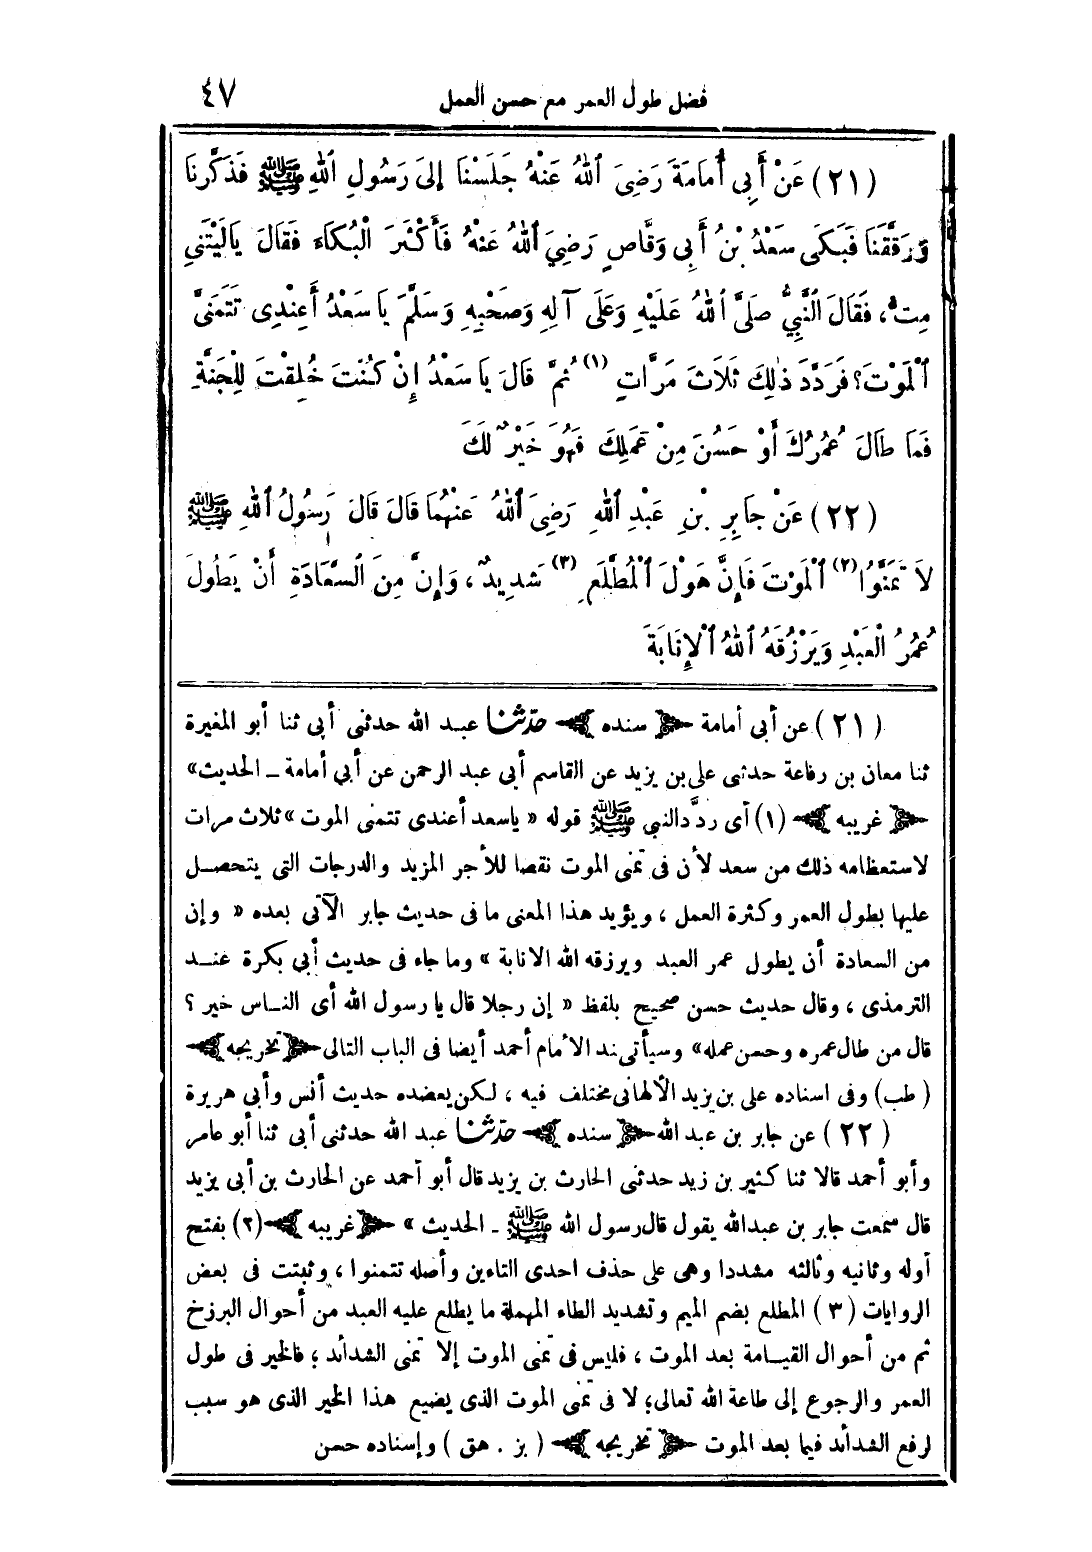 فضل طول العمر مع حسن العمل ٤٧
(٢١) عَنْ أَبِي أُمَامَةَ رَضِيَ اللهُ عَنْهُ جَلَسْنَا إِلَى رَسُولِ اللهِ ﷺ فَذَكَّرَنَا
وَرَقَّقَنَا فَبَكَى سَعْدُ بْنُ أَبِي وَقَّاصٍ رَضِيَ اللهُ عَنْهُ فَأَكْثَرَ الْبُكَاءَ فَقَالَ يَالَيْتَنِي
مِتُّ، فَقَالَ النَّبِيُّ صَلَّى اللهُ عَلَيْهِ وَعَلَى آلِهِ وَصَحْبِهِ وَسَلَّمَ يَا سَعْدُ أَعِنْدِي تَتَمَنَّى
الْمَوْتَ؟ فَرَدَّدَ ذٰلِكَ ثَلَاثَ مَرَّاتٍ (١) ثُمَّ قَالَ يَا سَعْدُ إِنْ كُنْتَ خُلِقْتَ لِلْجَنَّةِ
فَمَا طَالَ عُمُرُكَ أَوْ حَسُنَ مِنْ عَمَلِكَ فَهُوَ خَيْرٌ لَكَ
(٢٢) عَنْ جَابِرِ بْنِ عَبْدِ اللهِ رَضِيَ اللهُ عَنْهُمَا قَالَ قَالَ رَسُولُ اللهِ ﷺ
لَا تَمَنَّوُا (٢) الْمَوْتَ فَإِنَّ هَوْلَ الْمُطَّلَعِ (٣) شَدِيدٌ، وَإِنَّ مِنَ السَّعَادَةِ أَنْ يَطُولَ
عُمُرُ الْعَبْدِ وَيَرْزُقَهُ اللهُ الْإِنَابَةَ
(٢١) عن أبي أمامة ﴿ سنده ﴾ حدّثنا عبد الله حدثنى أبى ثنا أبو المغيرة
ثنا معان بن رفاعة حدثنى على بن يزيد عن القاسم أبى عبد الرحمن عن أبي أمامة ـ الحديث»
﴿ غريبه ﴾ (١) أى ردَّد النبي ﷺ قوله « ياسعد أعندى تتمنى الموت » ثلاث مرات
لاستعظامه ذلك من سعد لأن فى تمنى الموت نقصا للأجر المزيد والدرجات التى يتحصل
عليها بطول العمر وكثرة العمل ، ويؤيد هذا المعنى ما فى حديث جابر الآتى بعده « وإن
من السعادة أن يطول عمر العبد ويرزقه الله الانابة » وما جاء فى حديث أبي بكرة عند
الترمذى ، وقال حديث حسن صحيح بلفظ « إن رجلا قال يا رسول الله أى الناس خير ؟
قال من طال عمره وحسن عمله» وسيأتى ند الأمام أحمد أيضا فى الباب التالى ﴿ تخريجه ﴾
(طب) وفى اسناده على بن يزيد الألهانى مختلف فيه ، لكن يعضده حديث أنس وأبي هريرة
(٢٢) عن جابر بن عبد الله ﴿ سنده ﴾ حدّثنا عبد الله حدثنى أبى ثنا أبو عامر
وأبو أحمد قالا ثنا كثير بن زيد حدثنى الحارث بن يزيد قال أبو أحمد عن الحارث بن أبى يزيد
قال سمعت جابر بن عبدالله يقول قال رسول الله ﷺ ـ الحديث » ﴿ غريبه ﴾ (٢) بفتح
أوله وثانيه وثالثه مشددا وهى على حذف احدى التاءين وأصله تتمنوا ، وثبتت فى بعض
الروايات (٣) المطلع بضم الميم وتشديد الطاء المهملة ما يطلع عليه العبد من أحوال البرزخ
ثم من أحوال القيامة بعد الموت ، فليس فى تمنى الموت إلا تمنى الشدائد ؛ فالخير فى طول
العمر والرجوع إلى طاعة الله تعالى؛ لا فى تمنى الموت الذى يضيع هذا الخير الذى هو سبب
لرفع الشدائد فيما بعد الموت ﴿ تخريجه ﴾ ( بز . هق ) وإسناده حسن